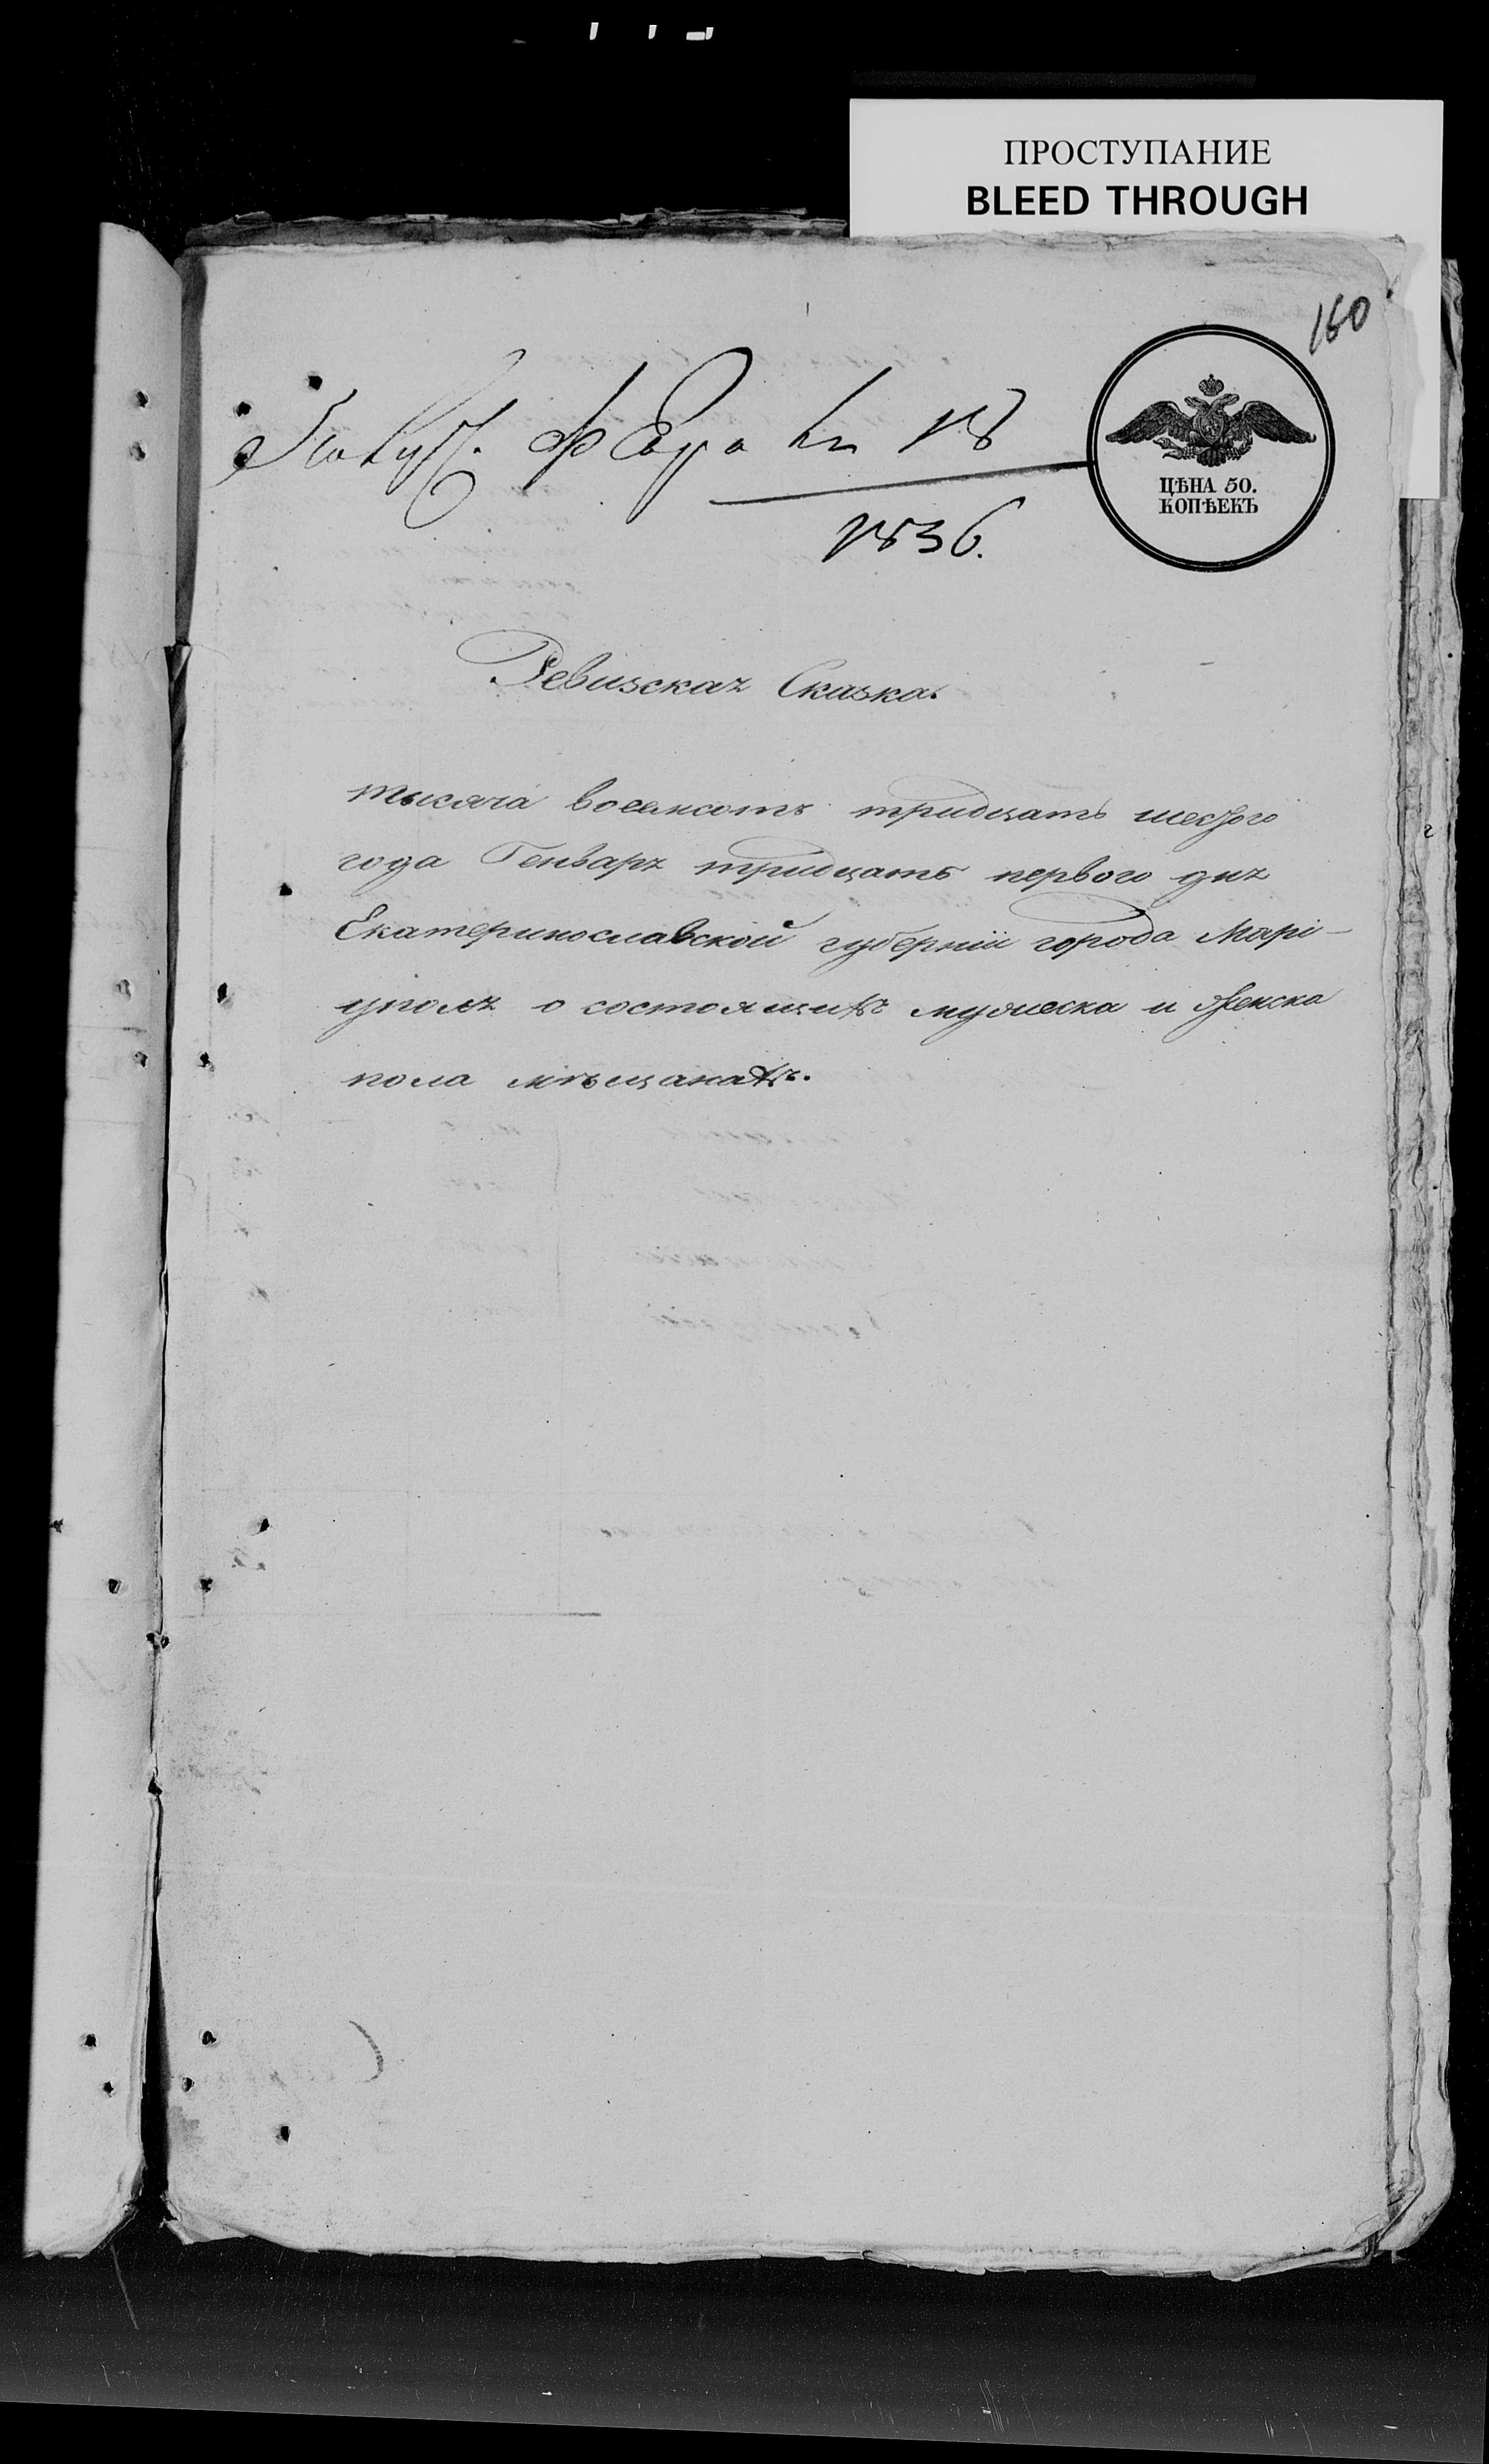 ПРОСТУПАНИЕ
BLEED THROUGH
160
18
1836.
ЦѢНА 50.
КОПѢЕКЪ
Ревизская Сказка.
тысяча восемсотъ тридцать шестого
года Генваря тридцать первого дня
Екатеринославской губерніи города Марі-
уполя о состоящихъ мужеска и женска
пола мѣщанахъ.